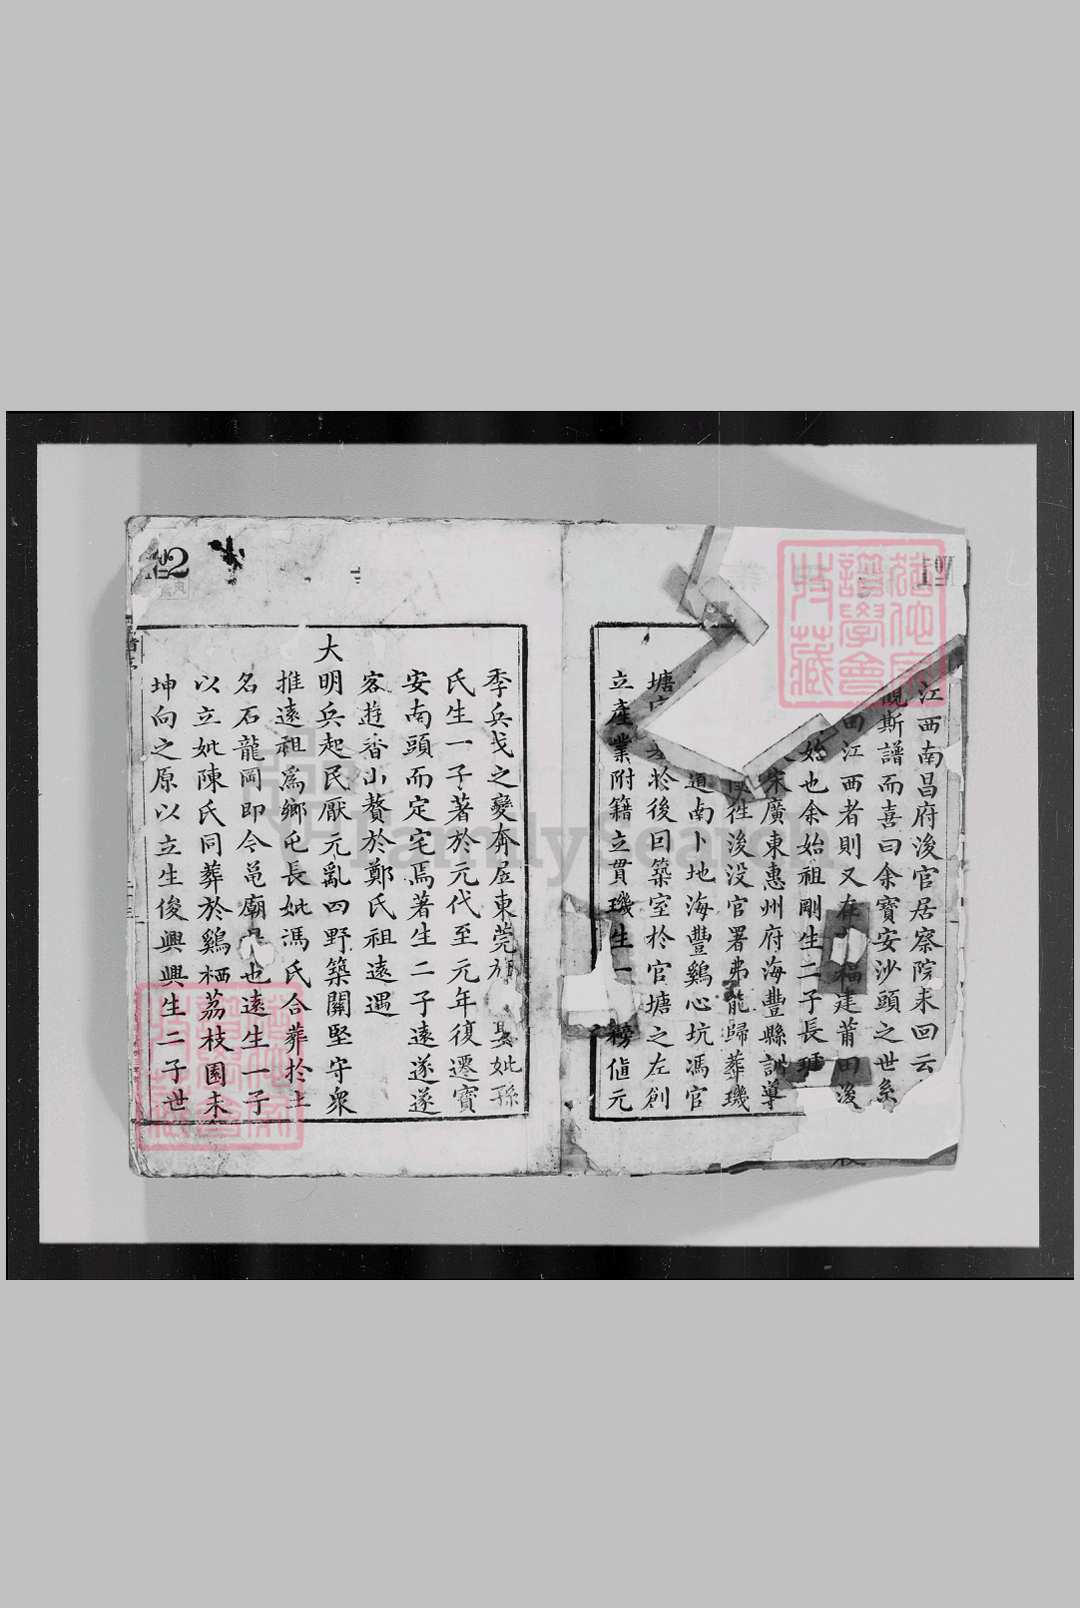 江西南昌府浚官居察院未回云
觀斯譜而喜曰余寶安沙頭之世系
田江西者則又存 福建莆田浚
始也余始祖剛生二子長琥
宋廣東惠州府海豐縣訓導
往浚没官署弗能歸葬璣
道南卜地海豐鷄心坑馮官
塘 於後回築室於官塘之左創
立產業附籍立貫璣生一 榜值元
季兵戈之變奔居東莞 妣孫
氏生一子著於元代至元年復遷寶
安南頭而定宅焉著生二子遠遂遂
客遊香小贅於鄭氏祖遠遇
大明兵起民厭元亂四野築關堅守衆
推遠祖爲鄉屯長妣馮氏合葬於土
名石龍岡即今邑廟 也遠生一子
以立妣陳氏同葬於鷄栖荔枝園未
坤向之原以立生俊興興生二子世
FamilySearch